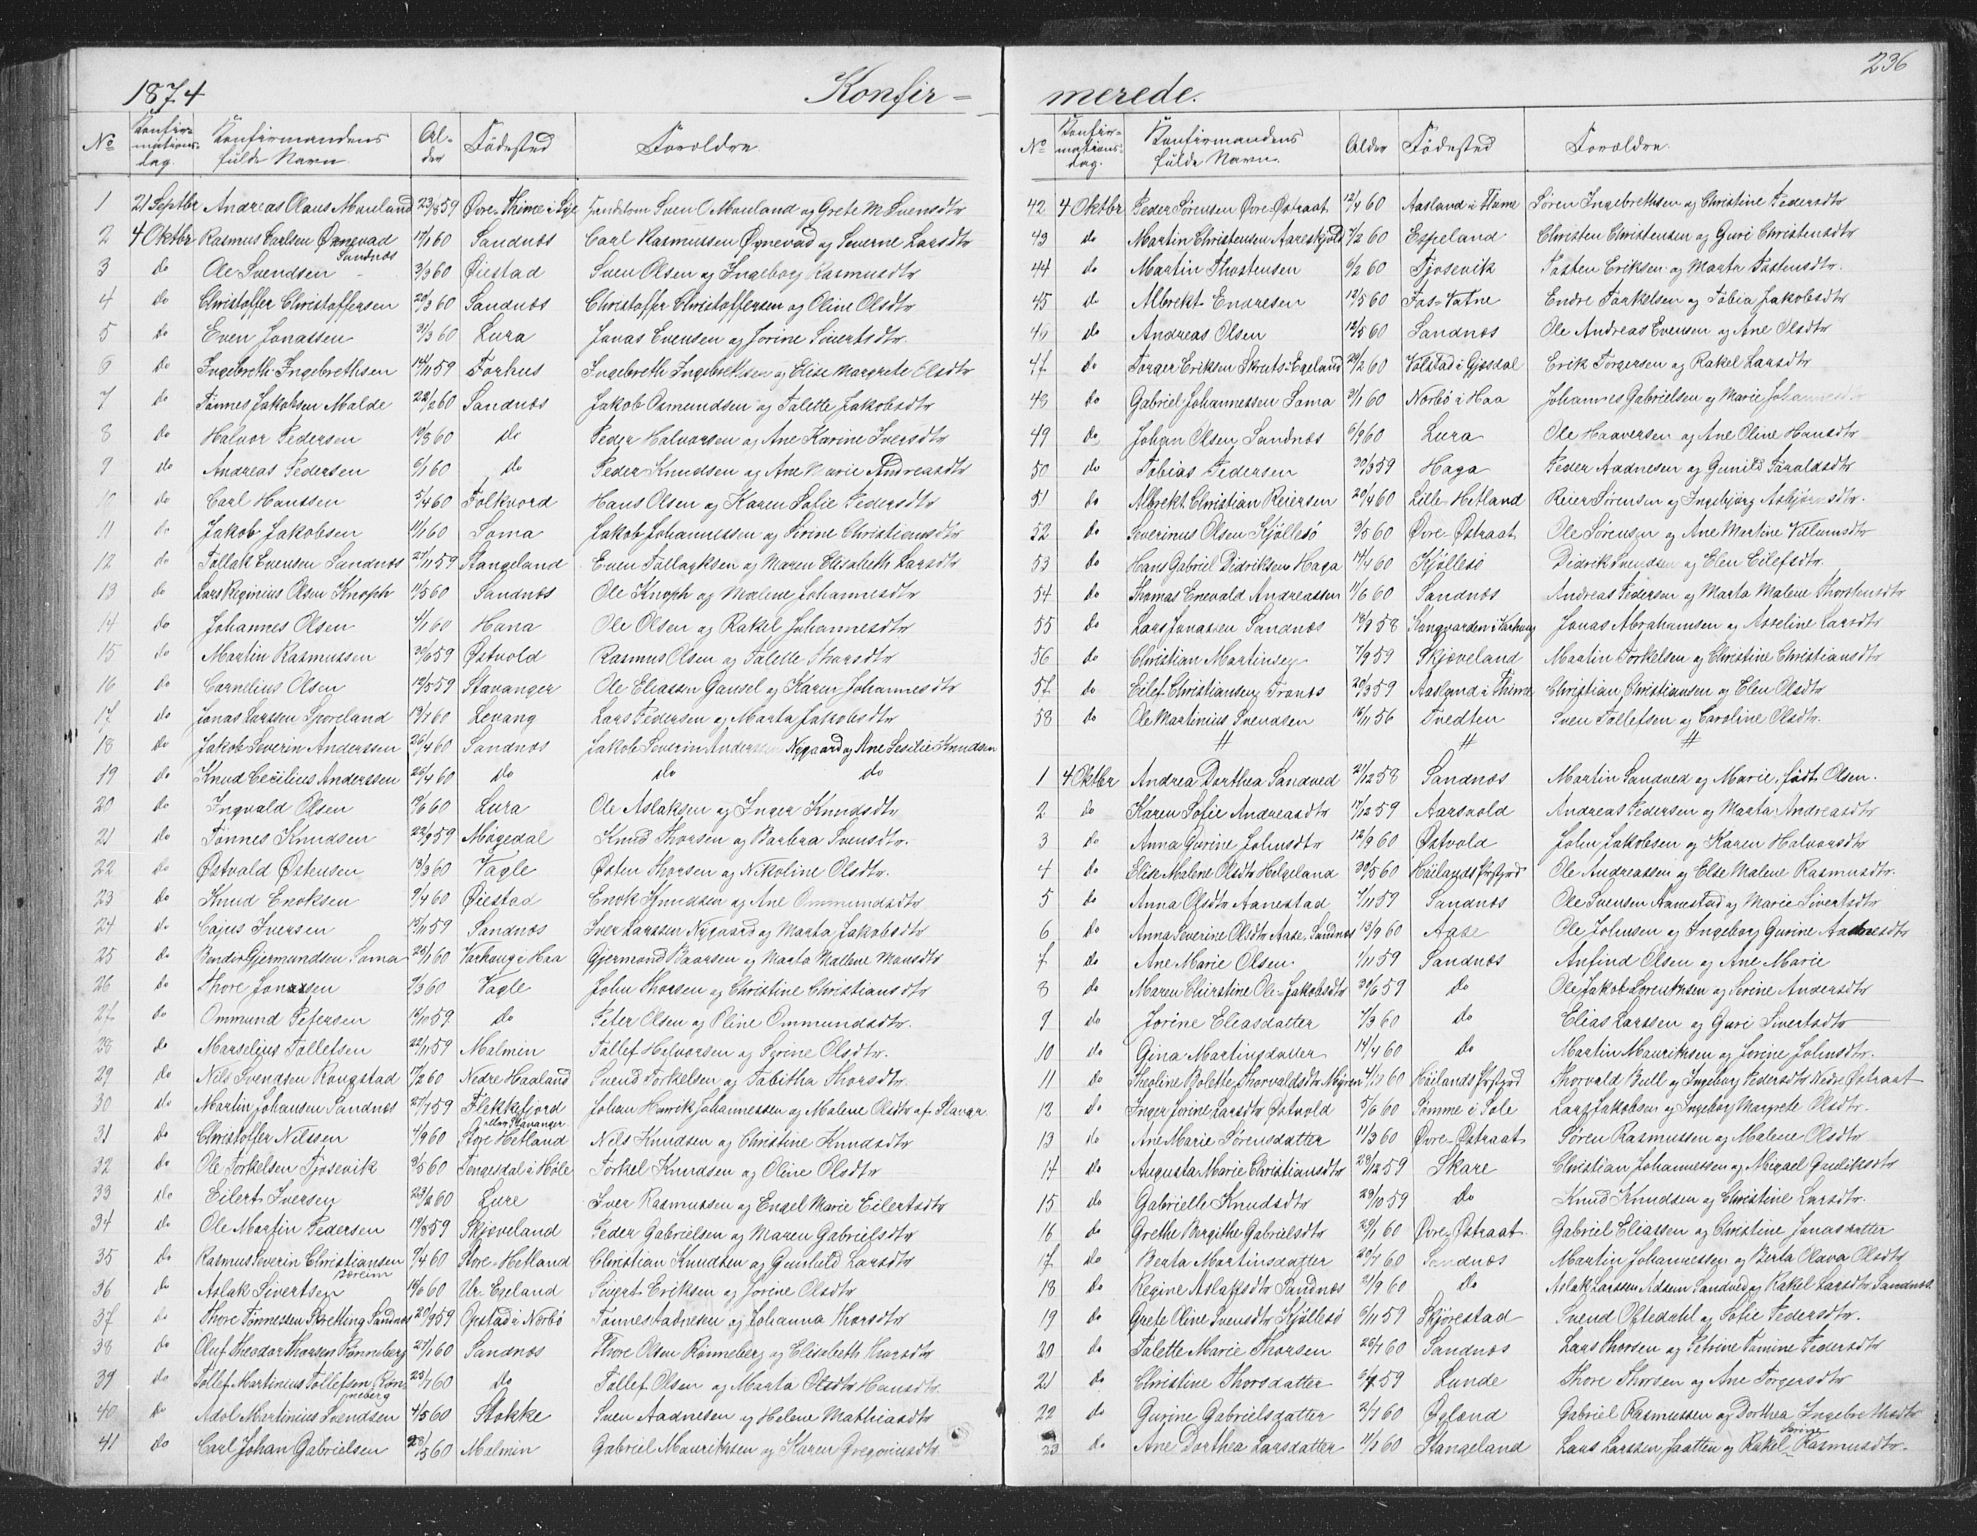 1874 Konfir-
No Konfirmations dag. Konfirmandens fulde Navn Alder Födested Foræeldre.
1 21 Septbr Andreas Olaus Mauland 23/8 59 Øvre Thime i Lye Sven O Mauland og Grete M Svensdtr
2 4 Oktbr Rasmus Carlsen Øgnevad Sandnæs 60 Sandnæs Carl Rasmussen Øgnevad og Severne Larsdtr
3 do Ole Svendsen 3/3 60 Øiestad Sven Olsen og Ingeborg Rasmusdtr
4 do Christoffer Christoffersen 20/3 60 Sandnæs Christoffer Christoffersen og Oline Olsdtr
5 do Even Jonassen 31/3 60 Lura Jonas Evensen og Jorine Sivertsdtr.
6 do Ingebreth Ingebrethsen 14/11 59 Forhus Ingebreth Ingebrethsen og Elise Margrete Olsdtr
7 do Tönnes Jakobsen Malde 22/2 60 Sandnæs Jakob Osmundsen og Talette Jakobsdtr
8 do Halvor Pedersen 60 do Peder Halvorsen og Ane Karine Iversdtr
9 do Andreas Pedersen 6/1 60 do Peder Knudsen og Ane Marie Andreasdtr
10 do Carl Hanssen 5/4 60 Folkvord Hans Olsen og Karen Sofie Pedersdtr
11 do Jakob Jakobsen 11/1 60 Soma Jakob Johannessen og Sirine Christiansdtr
12 do Tollak Evensen Sandnæs 27/11 59 Stangeland Even Tollagksen og Maren Elisabeth Larsdtr
13 do Lars Reginius Olsen Knoph 11/5 60 Sandnæs Ole Knoph og Malene Johannesdtr
14 do Johannes Olsen 4/1 60 Hana Ole Olsen og Rakel Johannesdtr
15 do Martin Rasmussen 30/6 59 Østvold Rasmus Olsen og Talette Thorsdtr
16 do Cornelius Olsen 59 Stavanger Ole Eliassen Gausel og Karen Johannesdtr
17 do Jonas Larssen Sporeland 60 Levang Lars Pedersen og Marta Jakobsdtr
18 do Jakob Severin Anderssen 26/4 60 Sandnæs Jakob Severin Anderssen Nygaard og Ane Sesilie Knudsen
19 do Knud Cecilius Anderssen 26/4 60 do do do
20 do Ingvald Olsen 60 Lura Ole Aslaksen og Inger Knudsdtr
21 do Tönnes Knudsen 22/9 59 Møgedal Knud Thorsen og Barbra Svensdtr.
22 do Østvald Østensen 13/3 60 Vagle Østen Thorsen og Nikoline Olsdtr.
23 do Knud Enoksen 9/4 60 Øiestad Enok Knudsen og Ane Ommundsdtr
24 do Cajus Iversen 59 Sandnæs Iver Larssen Nygaard og Marta Jakobsdtr
25 do Bendix Gjermundsen Soma 60 Varhoug i Haa Gjermond Baarsen og Marta Malene Mansdtr
26 do Thore Jonassen 60 Vagle John Thorsen og Christine Christiansdtr
27 do Ommund Petersen 59 do Peter Olsen og Oline Ommundsdtr.
28 do Marselius Tollefsen 22/11 59 Malmin Tollef Halvorsen og Serine Olsdtr.
29 do Nils Svendsen Rougstad 60 Nedre Haaland Svend Torkelsen og Tabitha Thorsdtr.
30 do Martin Johansen Sandnæs 59 Flekkefjord eller Stavanger Johan Henrik Johannessen og Malene Olsdtr af Stavgr
31 do Christoffer Nilssen 4/9 60 Store Hetland Nils Knudsen og Christine Knudsdtr
32 do Ole Torkelsen Tjosevik 60 Tengesdal i Höle Torkel Knudsen og Oline Olsdtr
33 do Eilert Iversen 23/2 60 Lure Iver Rasmussen og Engel Marie Eilertsdtr
34 do Ole Martin Pedersen 59 Skjæveland Peder Gabrielsen og Maren Gabrielsdtr
35 do Rasmus Severin Christiansen Boreim 60 Store Hetland Christian Knudsen og Gunhild Larsdtr
36 do Aslak Sivertsen 60 Ur. Egeland Sivert Eriksen og Jorine Olsdtr
37 do Thore Tönnessen Skretting Sandnæs 20/9 59 Opstad i Norbö Tönnes Aadnesen og Johanna Thorsdtr
38 do Oluf Theodor Thorsen Rönneberg 27/1 60 Sandnæs Thore Olsen Rönneberg og Elisabeth Thorsdtr
39 do Tollef Martinius Tollefsen Rönneberg 60 do Tollef Olsen og Marta Olsdtr Hansdtr
40 do Adol Martinius Svendsen 4/5 60 Stokke Sven Aadnesen og Helene Mathiasdtr
41 do Carl Johan Gabrielsen 60 Malmin Gabriel Mauriksen og Karen Gregoriusdtr
merede. 236
No Konfirmations dag. Konfirmandens fulde Navn. Alder Födested Forældre.
42 4 Oktbr Peder Sörensen Øvre Østraat 12/4 60 Aasland i Thime Sören Ingebrethsen og Christine Pedersdtr
43 do Martin Christensen Aareskjold 60 Espeland Christen Christensen og Guri Christensdtr
44 do Martin Thostensen 6/2 60 Tjosevik Tosten Eriksen og Marta Tostensdtr.
45 do Albrekt Endresen 12/5 60 Fos-Vatne Endre Torkelsen og Tobia Jakobsdtr
46 do Andreas Olsen 12/5 60 Sandnæs Ole Andreas Evensen og Ane Olsdtr
47 do Torger Eriksen Skruts-Egeland 60 Volstad i Gjesdal Erik Torgersen og Rakel Larsdtr
48 do Gabriel Johannessen Soma 60 Norbö i Haa Johannes Gabrielsen og Marie Johannesdtr
49 do Johan Olsen Sandnæs 60 Lura Ole Haaversen og Ane Oline Hansdtr
50 do Tobias Pedersen 59 Haga Peder Aadnesen og Gunild Taraldsdtr
51 do Albrekt Christian Reiersen 20/4 60 Lille-Hetland Reier Sörensen og Ingebjörg Asbjörnsdtr.
52 do Severinus Olsen Kjöllesö 60 Øvre Østraat Ole Sörensen og Ane Martine Villumsdtr
53 do Hans Gabriel Didriksen Haga 14/4 60 Kjöllesö Didrik Svendsen og Elen Eilefsdtr.
54 do Thomas Enevald Andreassen 11/6 60 Sandnæs Andreas Pedersen og Marta Malene Thorstensdtr
55 do Lars Jonassen Sandnæs 58 Kongvarden i Varhoug Jonas Abrahamsen og Asseline Larsdtr
56 do Christian Martinsen 7/9 59 Skjæveland Martin Torkelsen og Christine Christiansdtr
57 do Eilef Christiansen Tronæs 20/3 59 Aasland i Thime Christian Christiansen og Elen Olsdtr
58 do Ole Martinius Svendsen 56 Tvedten Sven Tollefsen og Caroline Olsdtr.
" " "
1 4 Oktbr Andrea Dorthea Sandved 58 Sandnæs Martin Sandved og Marie, födt Olsen.
2 do Karen Sofie Andreasdtr 17/12 59 Aarsvold Andreas Pedersen og Marta Andreasdtr
3 do Anna Gurine Johnsdtr 12/9 60 Østvold John Jakobsen og Karen Halvorsdtr
4 do Elise Malene Olsdtr Helgeland 30/5 60 Höilands Prstgjrd Ole Andreassen og Else Malene Rasmusdtr.
5 do Anna Olsdtr Aanestad 7/11 59 Sandnæs Ole Svensen Aanestad og Marie Sivertsdtr
6 do Anna Severine Olsdtr Aase, Sandnæs 13/9 60 Aase Ole Johnsen og Ingeborg Gurine Aadnesdtr
7 do Ane Marie Olsen 59 Sandnæs Anfind Olsen og Ane Marie
8 do Maren Christine Ole-Jakobsdtr 59 do Ole Jakob Lorentzsen og Serine Andersdtr
9 do Jorine Eliasdatter 7/3 60 do Elias Larssen og Guri Sivertsdtr
10 do Gina Martinsdatter 14/4 60 do Martin Mauriksen og Jorine Johnsdtr.
11 do Theoline Bolette Thorvaldsdtr Algrøn 60 Höilands Prstgjrd Thorvald Bull og Ingeborg Pedersdtr Nedre Østraat
12 do Inger Jorine Larsdtr Østvold 5/6 60 Sömme i Sole Lars Jakobsen og Ingeborg Margrete Olsdtr.
13 do Ane Marie Sörensdatter 11/3 60 Øvre-Østraat Sören Rasmussen og Malene Olsdtr
14 do Augusta Marie Christiansdtr 59 Skare Christian Johannessen og Mikael Guliksdtr
15 do Gabrielle Knudsdtr 59 do Knud Knudsen og Christine Larsdtr.
16 do Grethe Birgithe Gabrielsdtr 60 Øvre-Østraat Gabriel Eliassen og Christine Jonasdatter
17 do Berta Martinsdatter 60 Sandnæs Martin Johannessen og Berta Olava Olsdtr
18 do Regine Aslaksdtr Sandnæs 60 do Aslak Larssen Adsen Sandved og Rakel Larsdtr Sandnæs
19 do Grete Oline Svensdtr Kjöllesö 59 Skjörestad Svend Oftedahl og Sofie Pedersdtr.
20 do Talette Marie Thorsen 60 Sandnæs Lars Thorsen og Petrine Tomine Pedersdtr
21 do Christine Thorsdatter 59 Lunde Thore Thorsen og Ane Torgersdtr.
22 do Gurine Gabrielsdatter 60 Øglænd Gabriel Rasmussen og Dorthea Ingebrethsdtr
23 do Ane Dorthea Larsdatter 11/1 60 Stangeland Lars Larssen Jaatten og Rakel Serine Rasmusdtr.